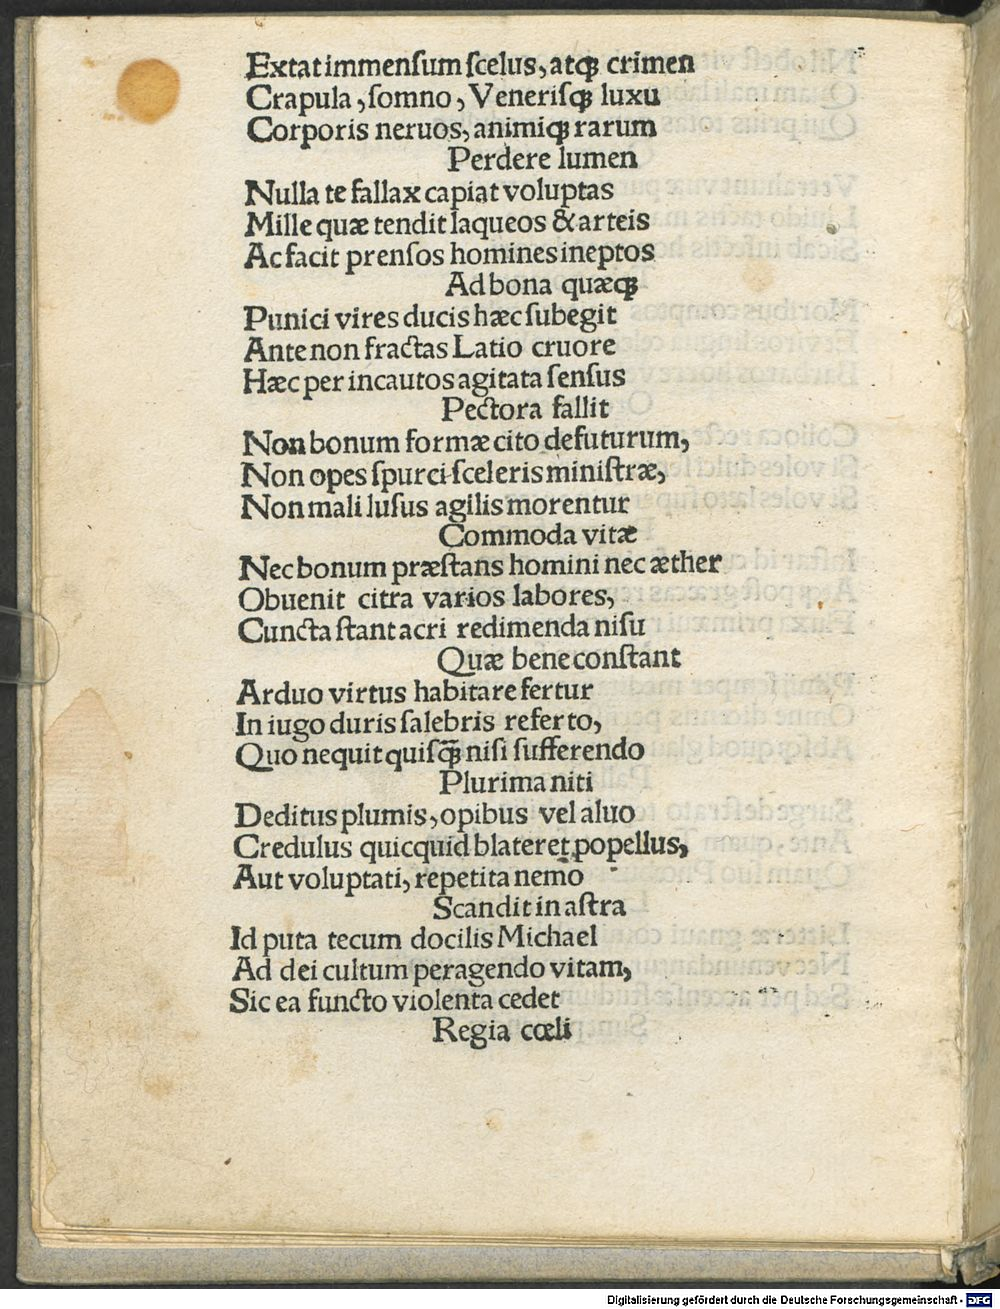 Extat immenſum ſcelus, atqꝫ crimen
Crapula, ſomno, Veneriſqꝫ luxu
Corporis neruos, animiqꝫ rarum
Perdere lumen
Nulla te fallax capiat voluptas
Mille quæ tendit laqueos & arteis
Ac facit prenſos homines ineptos
Ad bona quæqꝫ
Punici vires ducis hæc ſubegit
Ante non fractas Latio cruore
Hæc per incautos agitata ſenſus
Pectora fallit
Non bonum formæ cito defuturum,
Non opes ſpurci ſceleris miniſtræ,
Non mali luſus agilis morentur
Commoda vitæ
Nec bonum præſtans homini nec æther
Obuenit citra varios labores,
Cuncta ſtant acri redimenda niſu
Quæ bene conſtant
Arduo virtus habitare fertur
In iugo duris ſalebris referto,
Quo nequit quiſqꝫ̃ niſi ſufferendo
Plurima niti
Deditus plumis, opibus vel aluo
Credulus quicquid blateret popellus,
Aut voluptati, repetita nemo
Scandit in aſtra
Id puta tecum docilis Michael
Ad dei cultum peragendo vitam,
Sic ea functo violenta cedet
Regia cœli
Digitalisierung gefördert durch die Deutsche Forschungsgemeinschaft - DFG